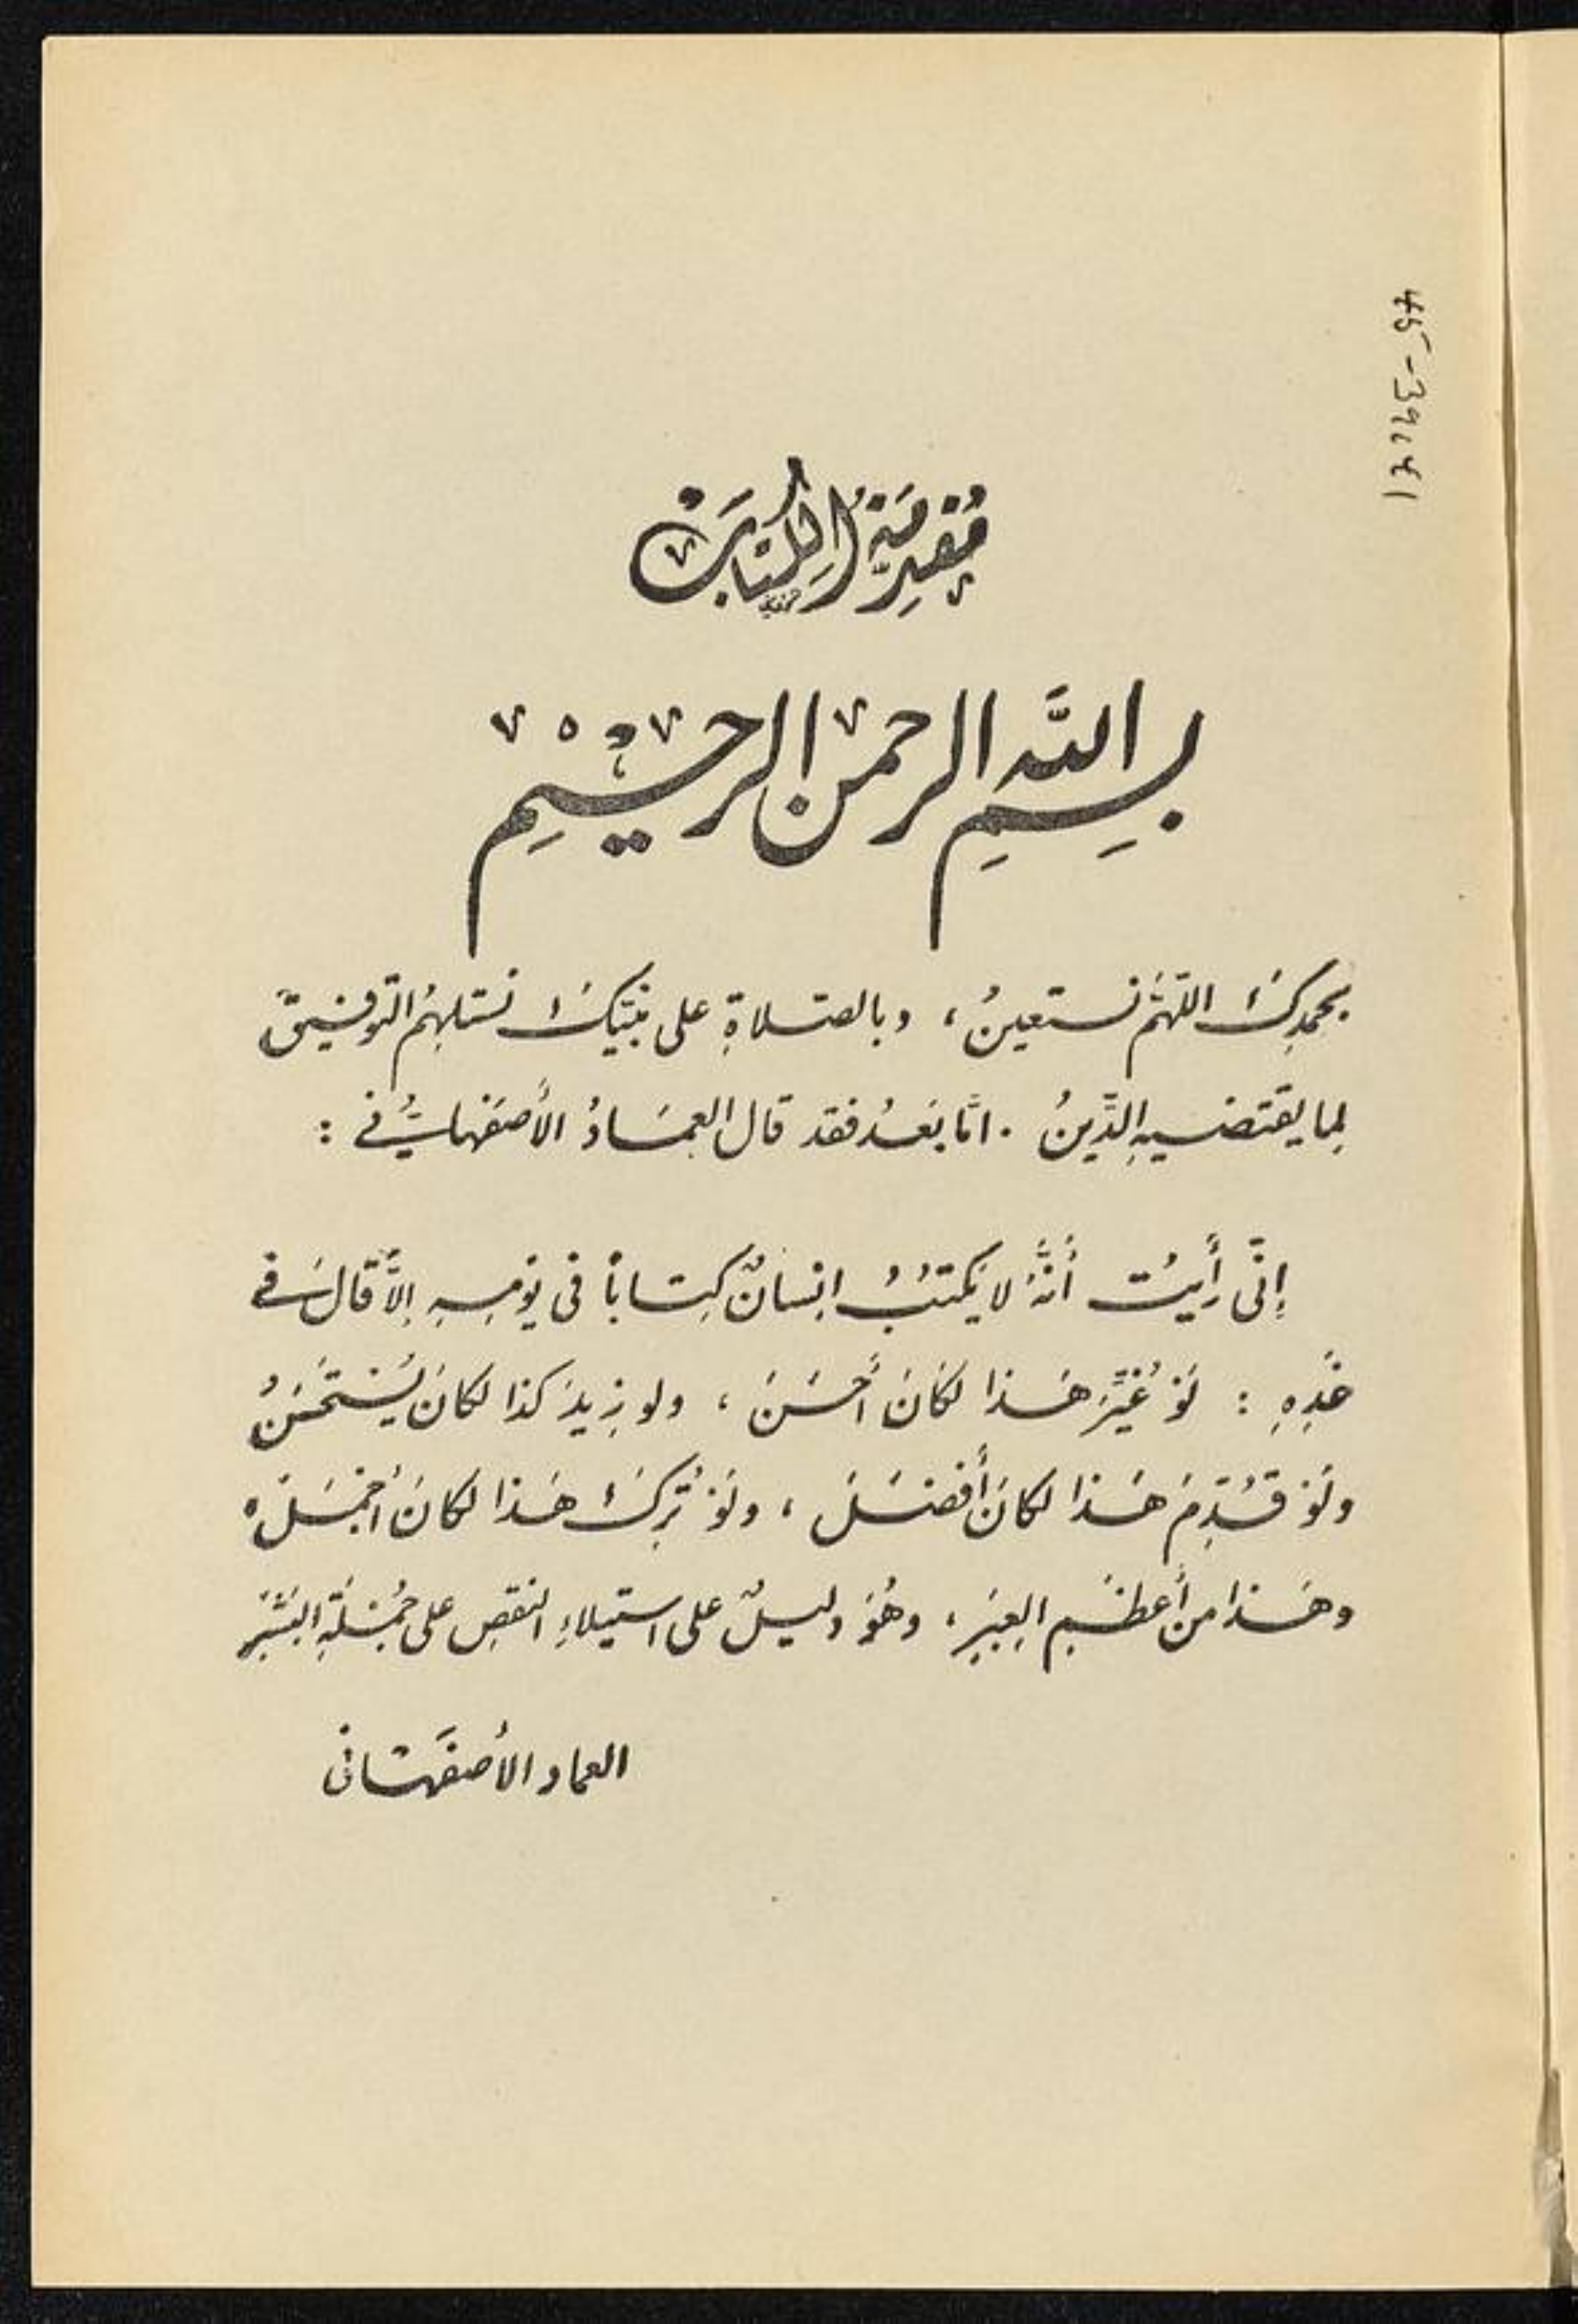 مُقَدِّمَةُ الكِتَابِ
بِسِمِ اللَّه الرحمن الرحيمِ
بحمدِكَ اللّهُمَّ نستعينُ ، وبالصلاةِ على نبيّكَ نستلهِمُ التوفيقَ
لِما يقتضيهِ الدِّينُ . امّا بَعدُ فقد قال العِمَادُ الأصفهانيُّ :
إنّى رأَيتُ أَنَّهُ لا يَكتبُ انسانٌ كِتاباً فى يَومِهِ إلَّا قالَ فى
غَدِهِ : لَوْ غُيِّرَ هَذا لكَانَ أَحسَنَ ، ولو زِيدَ كذا لكانَ يُسْتَحْسَنُ
ولَوْ قُدِّمَ هَذا لكانَ أَفضَلَ ، ولَوْ تُرِكَ هَذا لكانَ أَجْمَلَ ،
وهَذا من أَعظَمِ العِبَرِ ، وهُوَ دليلٌ على استيلاءِ النقصِ على جُمْلَةِ البَشَرِ
العماد الأصفَهانى
45-39641